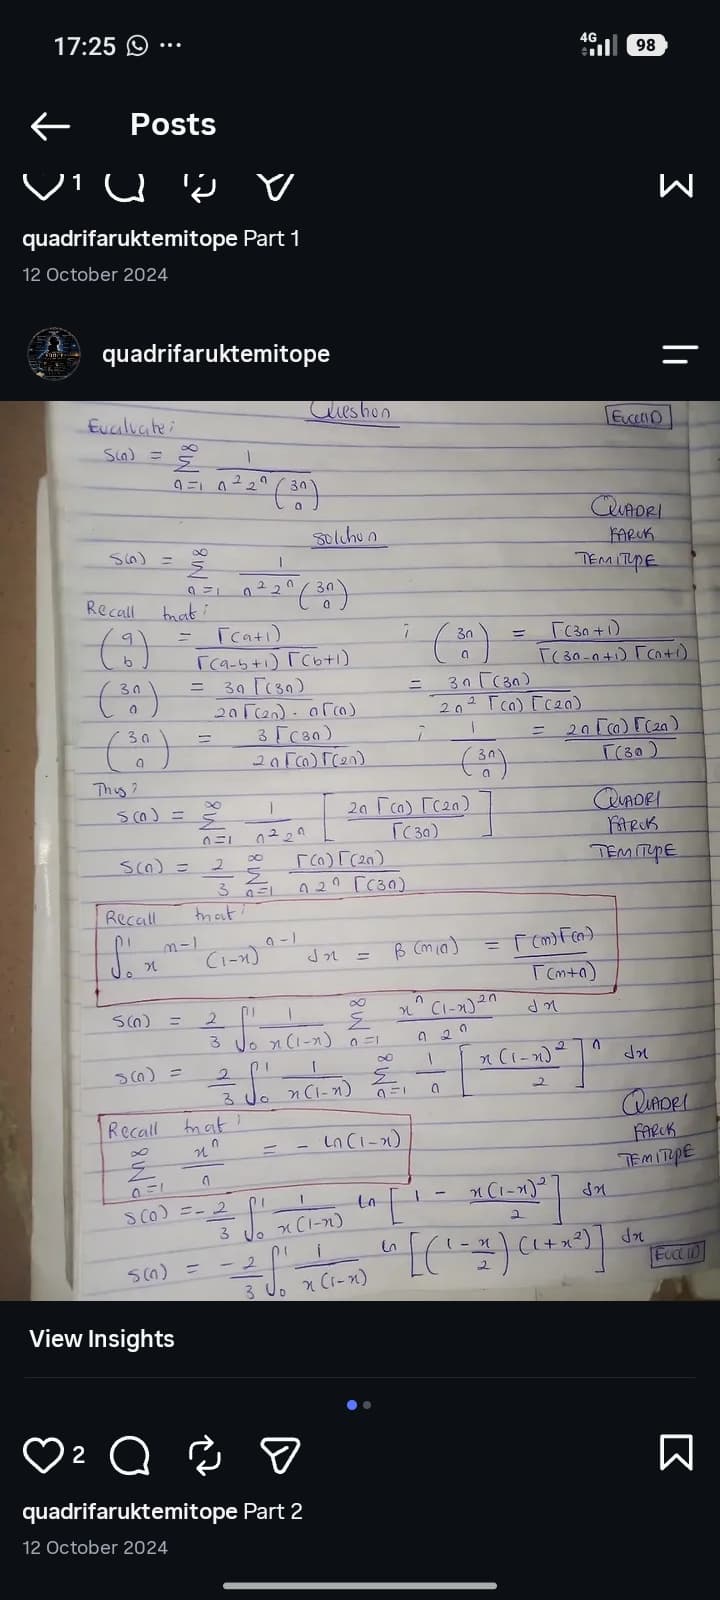 17:25 ...
4G 98
Posts
1
quadrifaruktemitope Part 1
12 October 2024
quadrifaruktemitope
Question
EUCLID
Evaluate:
S(n) = ∞Σn=1 1/(n² 2ⁿ (3n n))
Solution
QUADRI
FARUK
TEMITOPE
S(n) = ∞Σn=1 1/(n² 2ⁿ (3n n))
Recall that:
(a b) = Γ(a+1)/(Γ(a-b+1) Γ(b+1)) ; (3n n) = Γ(3n+1)/(Γ(3n-n+1) Γ(n+1))
(3n n) = 3n Γ(3n)/(2n Γ(2n) · n Γ(n)) = 3n Γ(3n)/(2n² Γ(n) Γ(2n))
(3n n) = 3 Γ(3n)/(2n Γ(n) Γ(2n)) ; 1/(3n n) = 2n Γ(n) Γ(2n)/Γ(3n)
Thus:
S(n) = ∞Σn=1 1/(n² 2ⁿ) [2n Γ(n) Γ(2n)/Γ(3n)]
QUADRI
FARUK
TEMITOPE
S(n) = 2/3 ∞Σn=1 Γ(n) Γ(2n)/(n 2ⁿ Γ(3n))
Recall that:
∫₀¹ x^(m-1) (1-x)^(n-1) dx = β(m,n) = Γ(m) Γ(n)/Γ(m+n)
S(n) = 2/3 ∫₀¹ 1/(x(1-x)) ∞Σn=1 xⁿ (1-x)²ⁿ/(n 2ⁿ) dx
S(n) = 2/3 ∫₀¹ 1/(x(1-x)) ∞Σn=1 1/n [x(1-x)²/2]ⁿ dx
QUADRI
FARUK
TEMITOPE
Recall that:
∞Σn=1 xⁿ/n = - ln(1-x)
S(n) = - 2/3 ∫₀¹ 1/(x(1-x)) ln [1 - x(1-x)²/2] dx
S(n) = - 2/3 ∫₀¹ 1/(x(1-x)) ln [(1 - x/2) (1+x²)] dx
EUCLID
View Insights
2
quadrifaruktemitope Part 2
12 October 2024